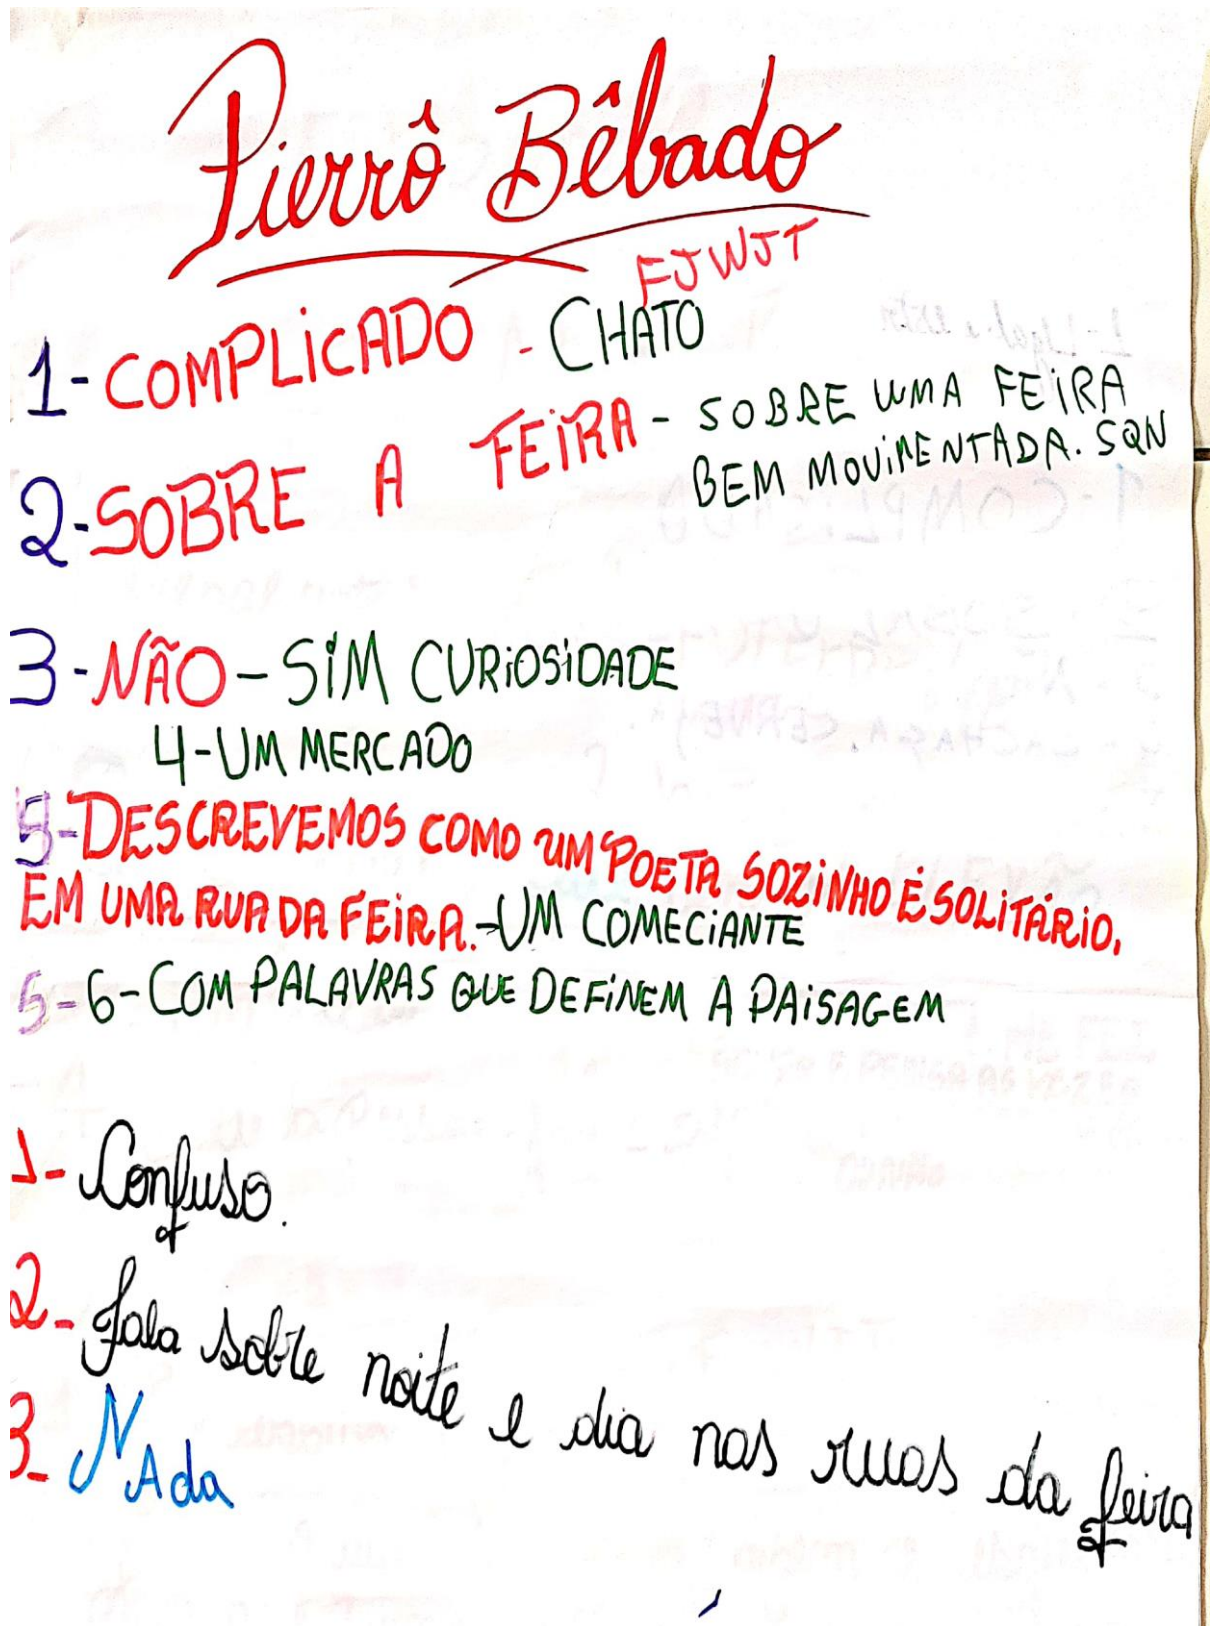 Pierrô Bêbado
FJWJT
1-COMPLiCADO - CHATO
2-SOBRE A FEiRA - SOBRE UMA FEiRA
BEM MOViMENTADA. SQN
3-NÃO - SiM CURiOSiDADE
4-UM MERCADO
5-DESCREVEMOS COMO UM POETA SOZiNHO É SOLiTÁRiO,
EM UMA RUA DA FEiRA.-UM COMECiANTE
5-6-COM PALAVRAS QUE DEFiNEM A PAiSAGEM
1- Confuso.
2- fala sobre noite e dia nas ruas da feira
3- NAda